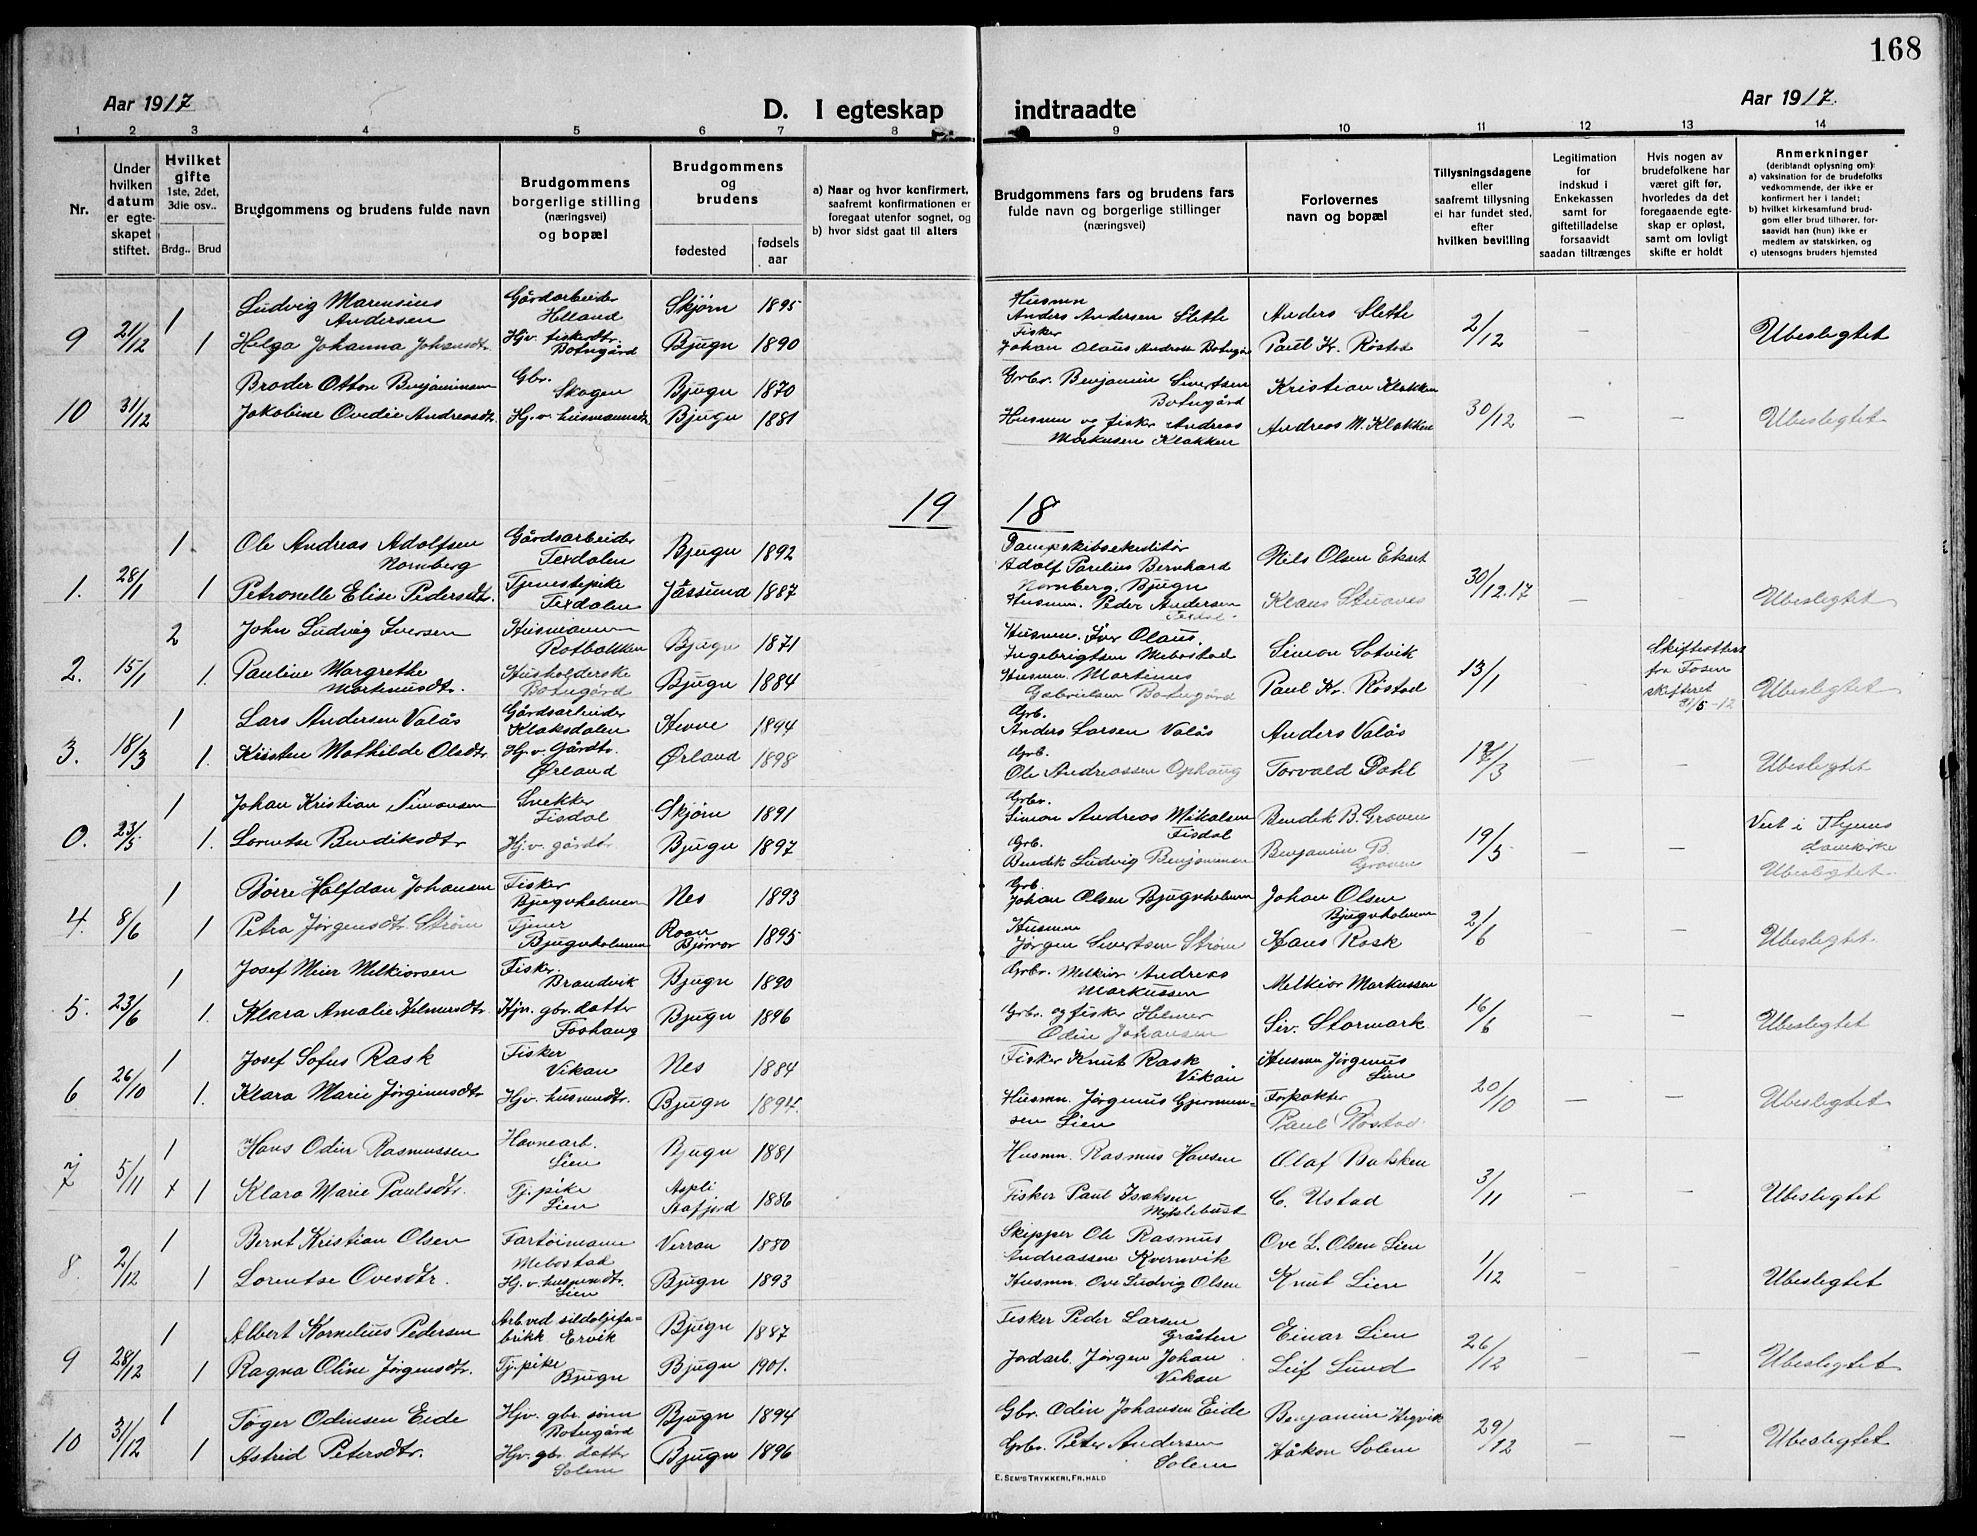 168
Aar 1917
D. I egteskap
indtraadte
Aar 1917.
1 2 3 4 5 6 7 8 9 10 11 12 13 14
Nr.
Under hvilken datum er egteskapet stiftet.
Hvilket gifte
1ste, 2det, 3die osv..
Brdg.. Brud
Brudgommens og brudens fulde navn
Brudgommens borgerlige stilling (næringsvei) og bopæl
Brudgommens og brudens
fødested
fødsels aar
a) Naar og hvor konfirmert, saafremt konfirmationen er foregaat utenfor sognet, og
b) hvor sidst gaat til alters
Brudgommens fars og brudens fars fulde navn og borgerlige stillinger (næringsvei)
Forlovernes navn og bopæl
Tillysningsdagene eller saafremt tillysning ei har fundet sted, efter hvilken bevilling
Legitimation for indskud i Enkekassen samt for giftetilladelse forsaavidt saadan tiltrænges
Hvis nogen av brudefolkene har været gift før, hvorledes da det foregaaende egteskap er opløst, samt om lovligt skifte er holdt
Anmerkninger
(deriblandt oplysning om):
a) vaksination for de brudefolks vedkommende, der ikke er konfirmert her i landet;
b) hvilket kirkesamfund brudgom eller brud tilhører, forsaavidt han (hun) ikke er medlem av statskirken, og
c) utensogns bruders hjemsted
9 21/12 1 Ludvig Marensius Andersen Gårdarbeider Helland Skjørn 1895 Husmn Anders Andersen Slette Anders Slette 2/12 – – Ubeslegtet
1 Helga Johanna Johansdtr. Hjv. fiskerdtr. Botngård Bjugn 1890 Fisker Johan Olaus Paul Kr. Røstad
10 31/12 Broder Otton Benjaminsen Gbr. Skogen Bjugn 1870 Grbr. Benjamin Sivertsen Botngård Kristian Klakken 30/12 – – Ubeslegtet
Jakobine Ovedie Andreasdtr. Hj. v. husmannsdtr. Bjugn 1881 Husmn og fisker Andreas Markusen Klakken Andreas M. Klakken
19 18
1. 28/1 1 Ole Andreas Adolfsen Nornberg Gårdsarbeider Texdalen Bjugn 1892 Dampskibsekspeditør Adolf Paulius Bernhard Nornberg, Bjugn Nils Olsen 30/12.17 – – Ubeslegtet
1 Petronelle Elise Pedersdtr. Tjenestepike Texdalen Jøssund 1887 Husmn. Peder Andersen Klaus
2. 15/1 2 John Ludvig Iversen Husmann Rotbakken Bjugn 1871 Husmn. Iver Olaus Ingebrigtsen Mebostad Simon Sotvik 13/1 – Skifteattest fra Fosen skifteret 31/5-12 Ubeslegtet
1. Pauline Margrethe Martinusdtr. Husholderske Botngård Bjugn 1884 Husmn. Martinus Gabrielsen Botngård Paul Kr. Røstad
3. 18/3 1 Lars Andersen Valås Gårdsarbeider Klaksdalen Hevne 1894 Grb. Anders Larsen Valås Anders Valås 17/3 – – Ubeslegtet
1. Kristen Mathilde Olsdtr. Hj. v. Gårdtr. Ørland Ørland 1898 Grb. Ole Andreassen Ophaug Torvald Dahl
0. 23/5 1 Johan Kristian Simonsen Snekker Fisdal Skjørn 1891 Grbr. Simon Andreas Mikalsen Fisdal Bendik B. Graven 19/5 – – Viet i
1. Lorentse Bendiksdtr Hj. v. gårdtr. Bjugn 1897 Grb. Bendik Ludvig Benjaminsen Benjamin B. Graven Ubeslegtet.
4. 8/6 1 Børre Halfdan Johansen Fisker Bjugnholmen Nes 1893 Grb. Johan Olsen Bjugnholmen Johan Olsen Bjugnholmen 2/6 – – Ubeslegtet
1 Petra Jørgensdtr. Strøm Tjener Bjugnholmen Roan 1895 Husmn Jørgen Sivertsen Strøm Hans Rask
5. 23/6 1 Josef Meier Melkiorsen Fisker Brandvik Bjugn 1890 Grbr. Melkior Andreas Markussen Melkior Markussen 16/6 – – Ubeslegtet
1. Klara Amalie Helmersdtr. Hjv. gbr. datter Foshaug Bjugn 1896 Grbr. og fisker Helmer Odin Johansen Siv. Stormark
6 26/10 1 Josef Sofus Rask Fisker Vikan Nes 1884 Fisker Knut Rask Vikan Husmn Jørginus Lien 20/10 – – Ubeslegtet
1. Klara Marie Jørginusdtr. Hjv. husmdtr. Bjugn 1894. Husmn. Jørginus Lien Forpakter Paul Røstad
7 5/11 1 Hans Odin Rasmussen Havnearb. Lien Bjugn 1881 Husmn. Rasmus Hansen Olaf Bakken 3/11 – – Ubeslegtet
1 Klara Marie Paulsdtr. Tj. pike Lien 1886 Fisker Paul Isaksen Myklebust C. Ustad
8. 2/12 1 Bernt Kristian Olsen Fartøimann Mebostad Verran 1880 Skipper Ole Rasmus Andreassen Kvernvik Ove L. Olsen Lien 1/12 – – Ubeslegtet
1 Lorentse Ovesdtr. Hj. v. husmndtr. Lien Bjugn 1893 Husmn. Ove Ludvig Olsen Knut Lien
9 28/12 1 Albert Kornelius Pedersen Arb. ved sildoljefabrikk Ervik Bjugn 1887 Fisker Peder Larsen Gråsten Einar Lien 26/12 – – Ubeslegtet
1 Ragna Oline Jørgensdtr. Tj. pike Bjugn Bjugn 1901. Jordarb. Jørgen Johan Vikan Leif Lund
10 31/12 1 Tøger Odinsen Eide Hjv. gbr. sønn Botngård Bjugn 1894 Gbr. Odin Johansen Eide Benjamin Høgvik 29/12 – – Ubeslegtet
1 Astrid Petersdtr. Hjv. gbr. datter Solem Bjugn 1896 Grbr. Peter Andersen Solem Håkon Solem
E. SEM'S TRYKKERI, FR.HALD